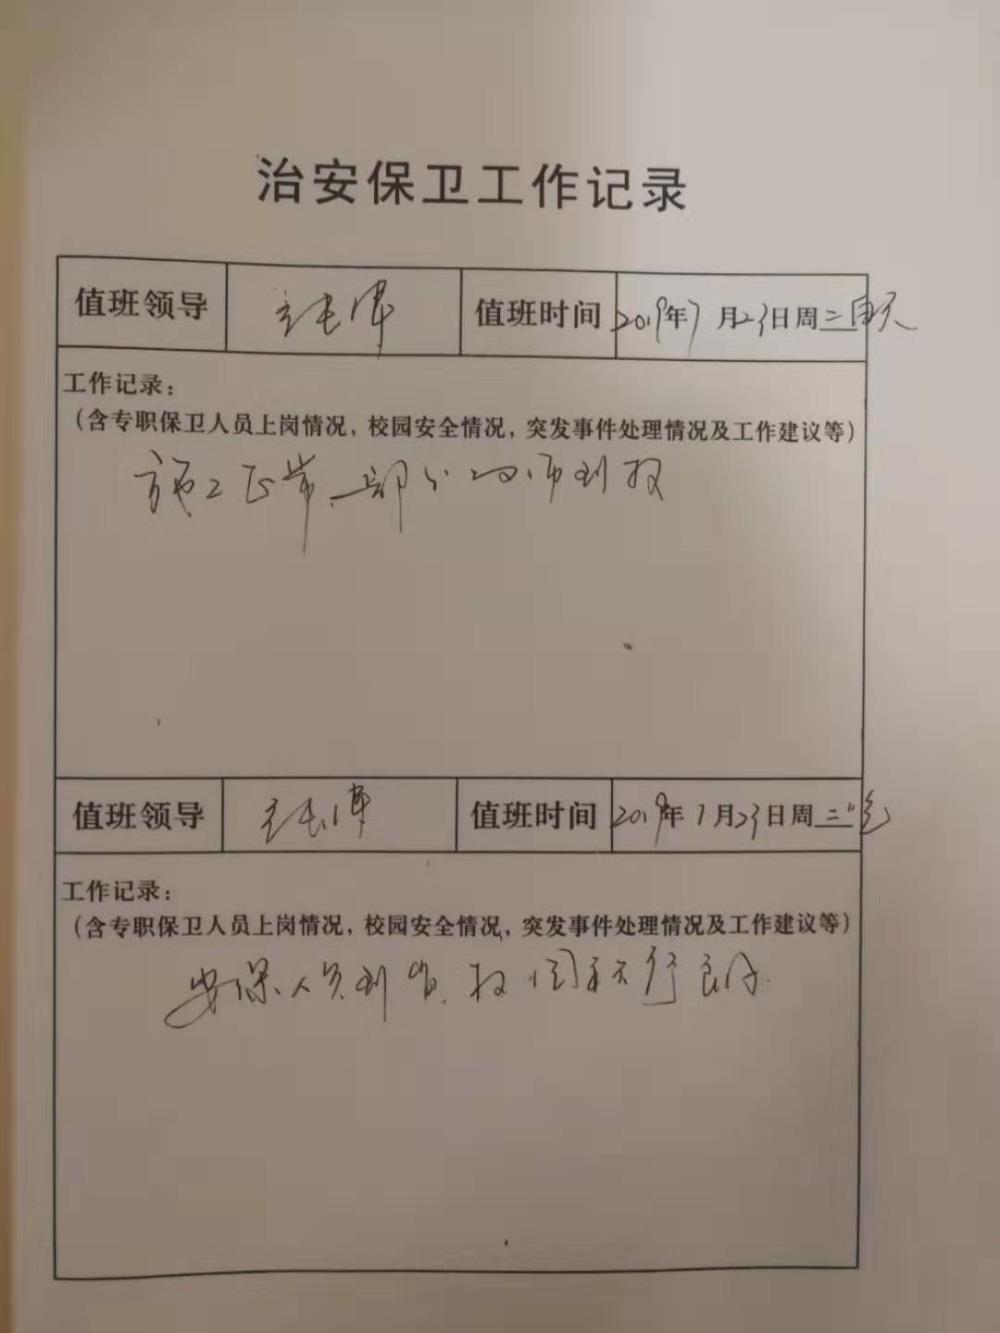 治安保卫工作记录
值班领导 值班时间 2019年7月23日周二白天
工作记录：
（含专职保卫人员上岗情况，校园安全情况，突发事件处理情况及工作建议等）
施工正常，部分 师到校
值班领导 值班时间 2019年7月23日周二
工作记录：
（含专职保卫人员上岗情况，校园安全情况，突发事件处理情况及工作建议等）
安保人员到岗，校园 行良好.